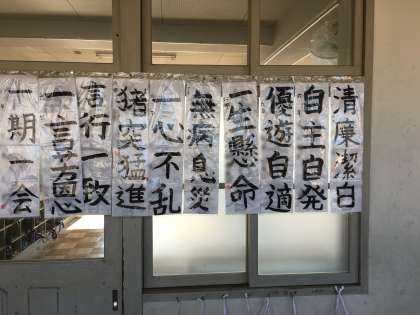 清廉潔白
自主自発
優遊自適
一生懸命
無病息災
一心不乱
猪突猛進
言行一致
一期一会